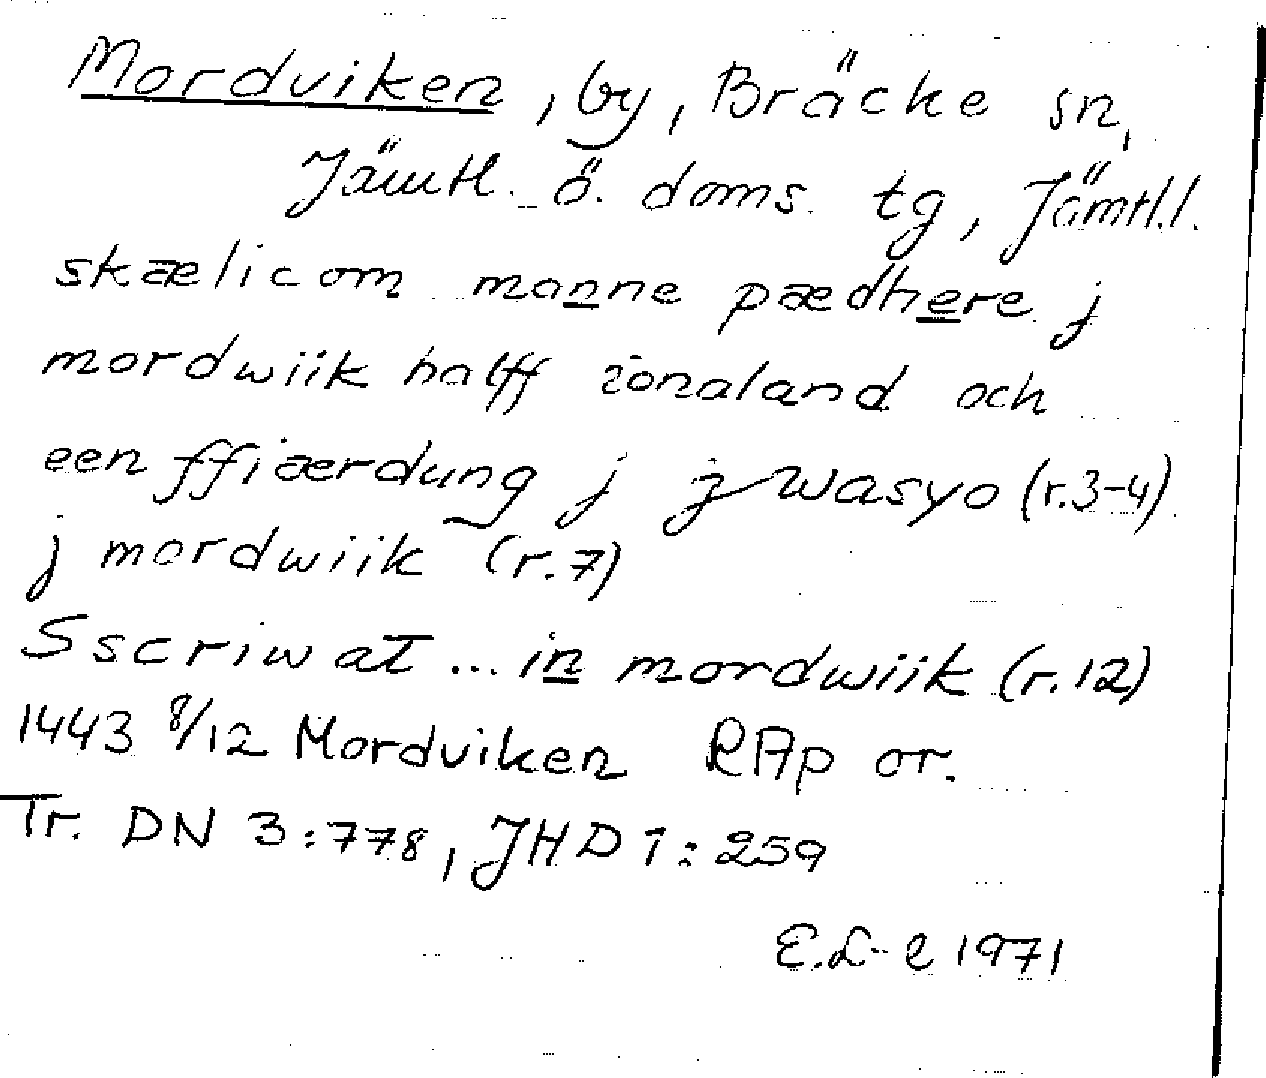 Mordviken, by, Bräcke sn,
Jämtl. ö. doms. tg, Jämtl.l.
skælicom manne pædhere j
mordwiik halff iönaland och
een ffiærdung j j wasyo (r.3-4)
j mordwiik (r.7)
Sscriwat ... in mordwiik (r.12)
1443 8/12 Mordviken RAp or.
Tr. DN 3:778, JHD 1:259
E.L-e 1971